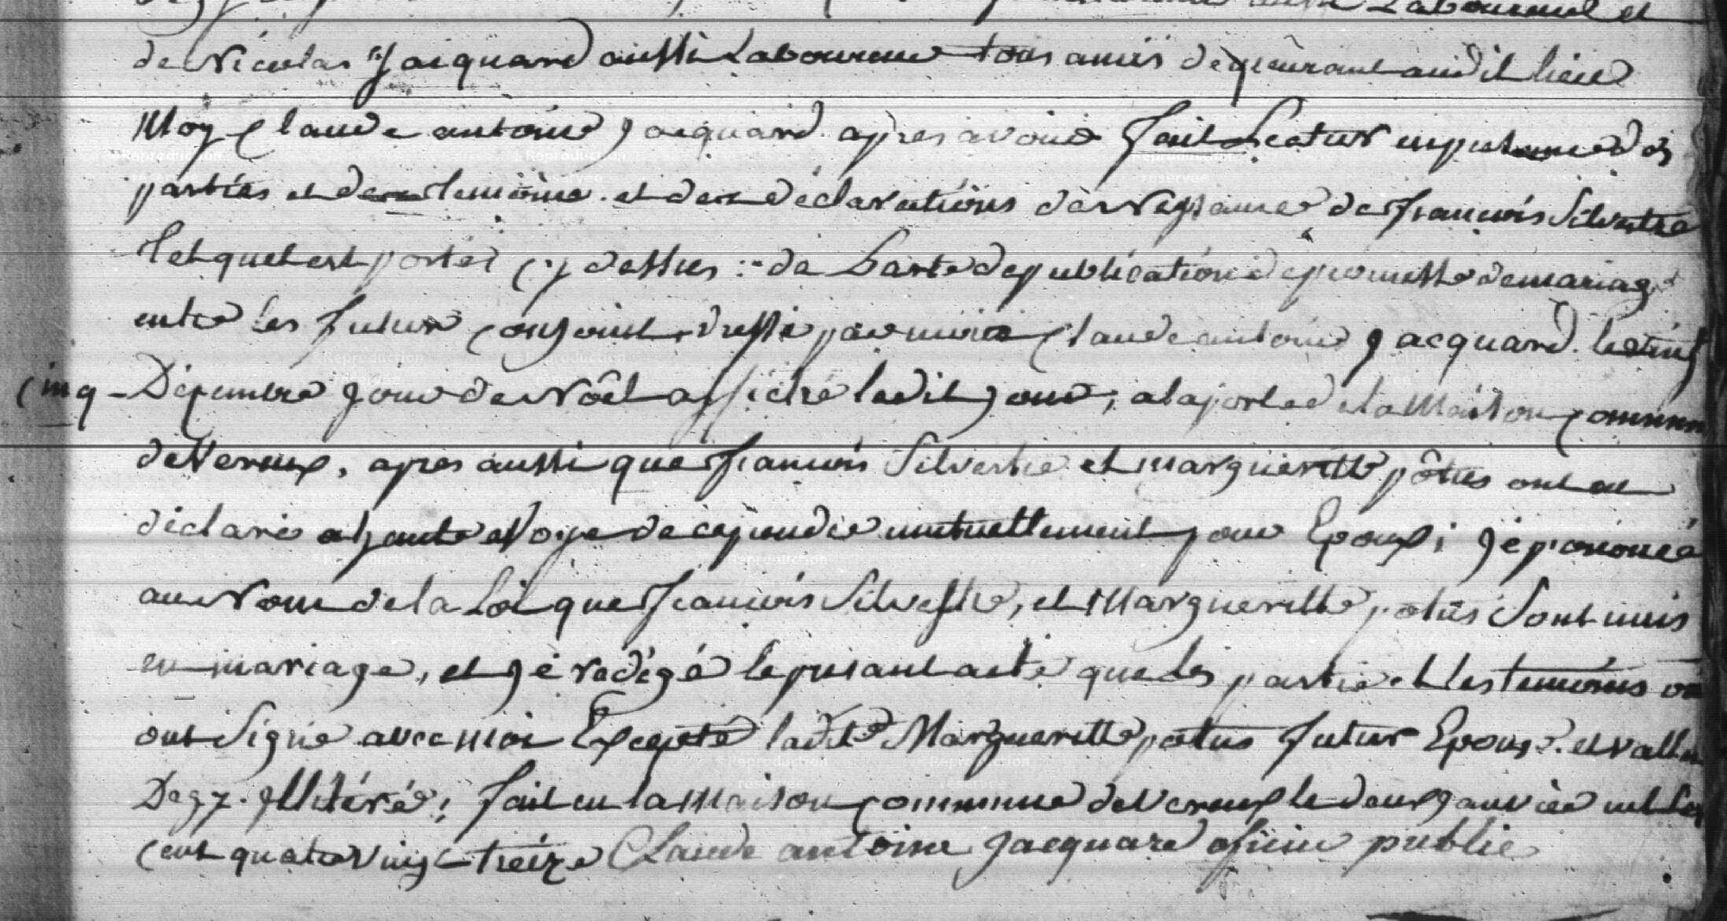 Laboureur et
de Nicolas Jacquard aussi Laboureur tous amis demeurant audit lieu
Moy Claude antoine Jacquard apres avoir fait Lectur en presance des
parties et des temoins et des déclarations de Nessance de françois Silvestre
tel quel est porter cy dessus de Lacte de publication de promesse de mariage
entre les futur conjoint dressé par moi Claude antoine Jacquard le vint
cinq - Décembre jour de Noêl affiché ledit jour, a la porte de la Maison commune
de Vereux, apres aussi que françois Silvestre et margueritte pôtus ont
déclaré a haute Voye de ce prendre mutuellement pour Epoux; Jé prononcé
au Nom de la Loi que françois Silvestre, et Margueritte potus Sont unis
en mariage, et Jé rédigé le presant acte que les partie et les temoins
ont Signé avec moi Excepté ladite Margueritte potus futur Epouse et
illitéré; fait en la Maison commune de Vereux le deux janvier mil sept
cent quatre vingt treize Claude antoine Jacquard oficier public